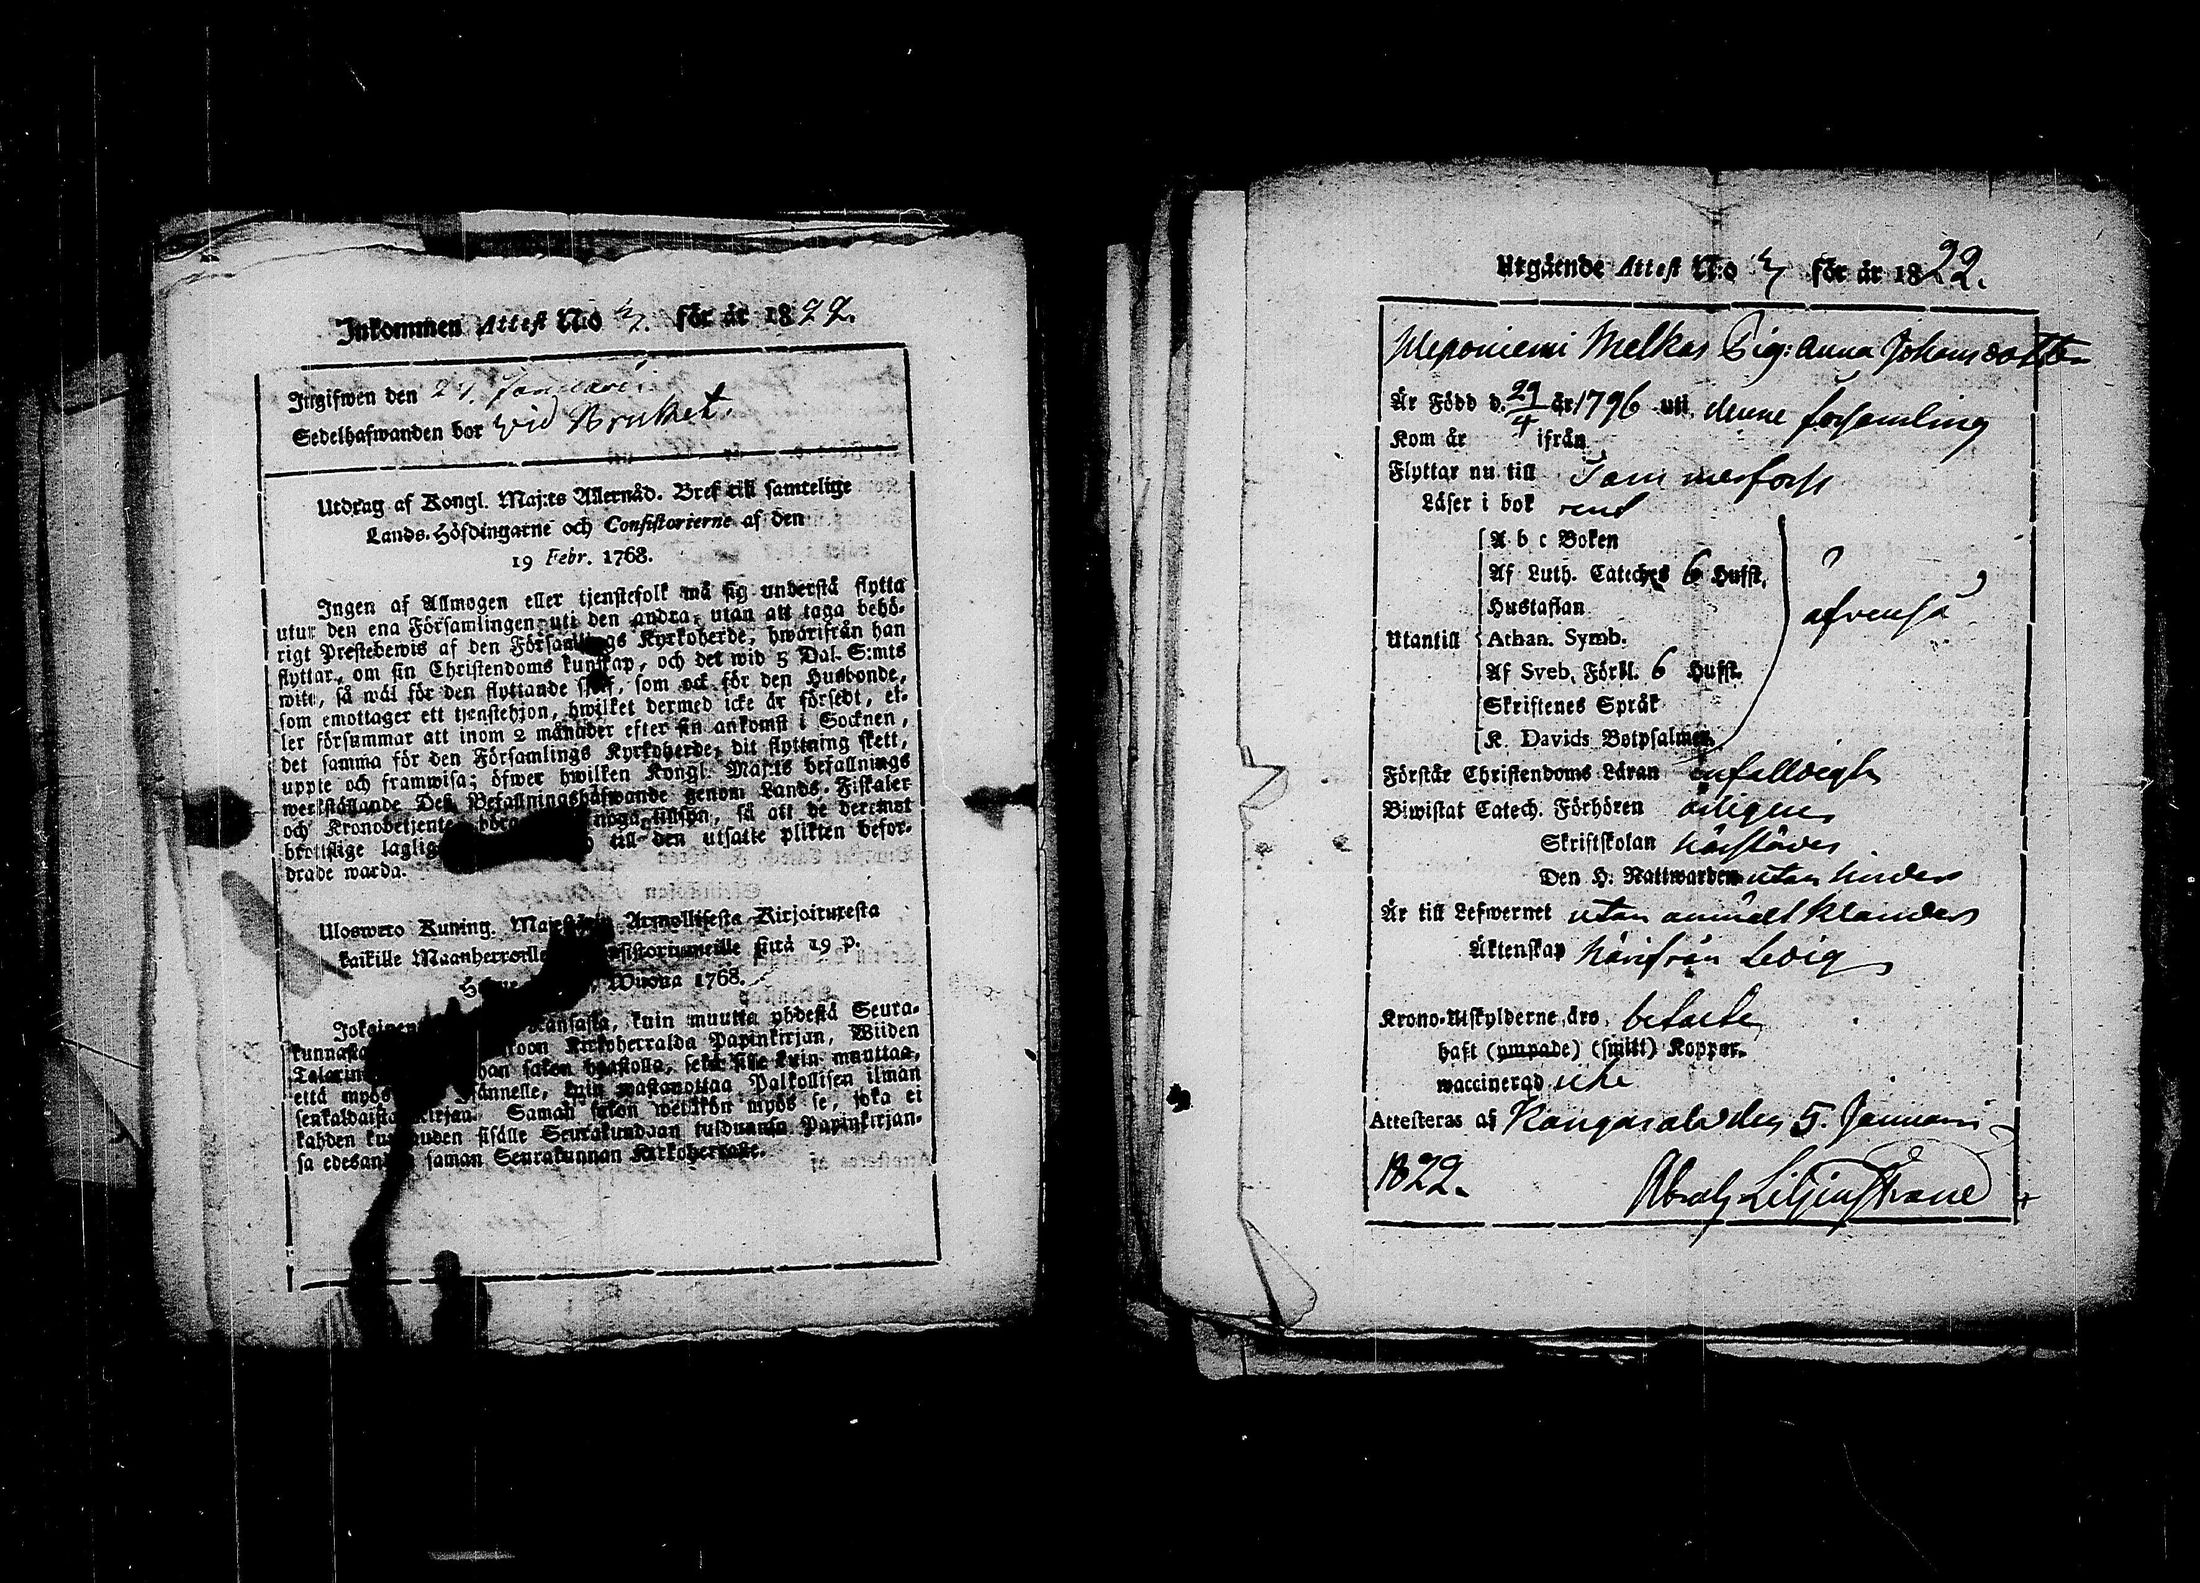 Inkommen Attest N:o 3. för år 1822.
Ingifwen den 24. Januarii
Sedelhafwanden bor wid Bruket.
Utdrag af Kongl. Maj:ts Allernåd. Bref till samtelige
Lands-Höfdingarne och Consistorierne af den
19 Febr. 1768.
Ingen af Allmogen eller tjenstefolk må sig understå flytta
utur den ena Församlingen uti den andra, utan att taga behö-
rigt Prestebewis af den Församlings Kyrkoherde, hwarifrån han
flyttar, om sin Christendoms kunskap, och det wid 5 Dal. S:mts
wite, så wäl för den flyttande sjelf, som ock för den Husbonde,
som emottager ett tjenstehjon, hwilket dermed icke är försedt, el-
ler försummar att inom 2 månader efter sin ankomst i Socknen,
det samma för den Församlings Kyrkoherde, dit flyttning skett,
uppte och framwisa; öfwer hwilken Kongl. Maj:ts befallnings
werkställande Deß Befallningshafwande genom Lands-Fiskaler
och Kronobetjente noga tillsyn, så att de deremot
brottslige laglig till den utsatte plikten befor-
drade warda.
Ulosweto Kuning. Armollisesta Kirjoituxesta
kaikille Maanherroille sitä 19 p.
Wuona 1768.
kuin muutta yhdestä Seura-
kunnasta Kirkoherralda Papinkirjan, Wiiden
sakon haastolla, sekä sille kuin muuttaa,
että myös kuin wastanottaa Palkollisen ilman
senkaldaista Kirjan. Saman sakon wetäkön myös se, joka ei
kahden sisälle Seurakundaan tulduansa Papinkirjan-
sa edesanna saman Seurakunnan Kirkoherralle.
Utgående Attest N:o 3 för år 1822.
Weponiemi Melkas Pig: Anna Johansdotter
Är Född d. 29/4 år 1796 uti denne församling
Kom år ifrån
Flyttar nu till Tammerfors
Läser i bok rent
A b c Boken
Af Luth. Cateches 6 Hufst.
Hustaflan
Utantill Athan. Symb. äfvenså
Af Sveb. Förkl. 6 Hufst.
Skriftenes Språk
K. Davids Botpsalmer.
Förstår Christendoms Läran enfalldigt
Biwistat Catech. Förhören årligen
Skriftskolan härstädes
Den H. Nattwarden utan hinder
Är till Lefwernet utan anmält klander
Äktenskap härifrån Ledig
Krono-Utskylderne äro betalte
haft (ympade) (smitt) Koppor.
waccinerad icke
Attesteras af Kangasala den 5. Januarii
1822.
Abrah Liljenstrane